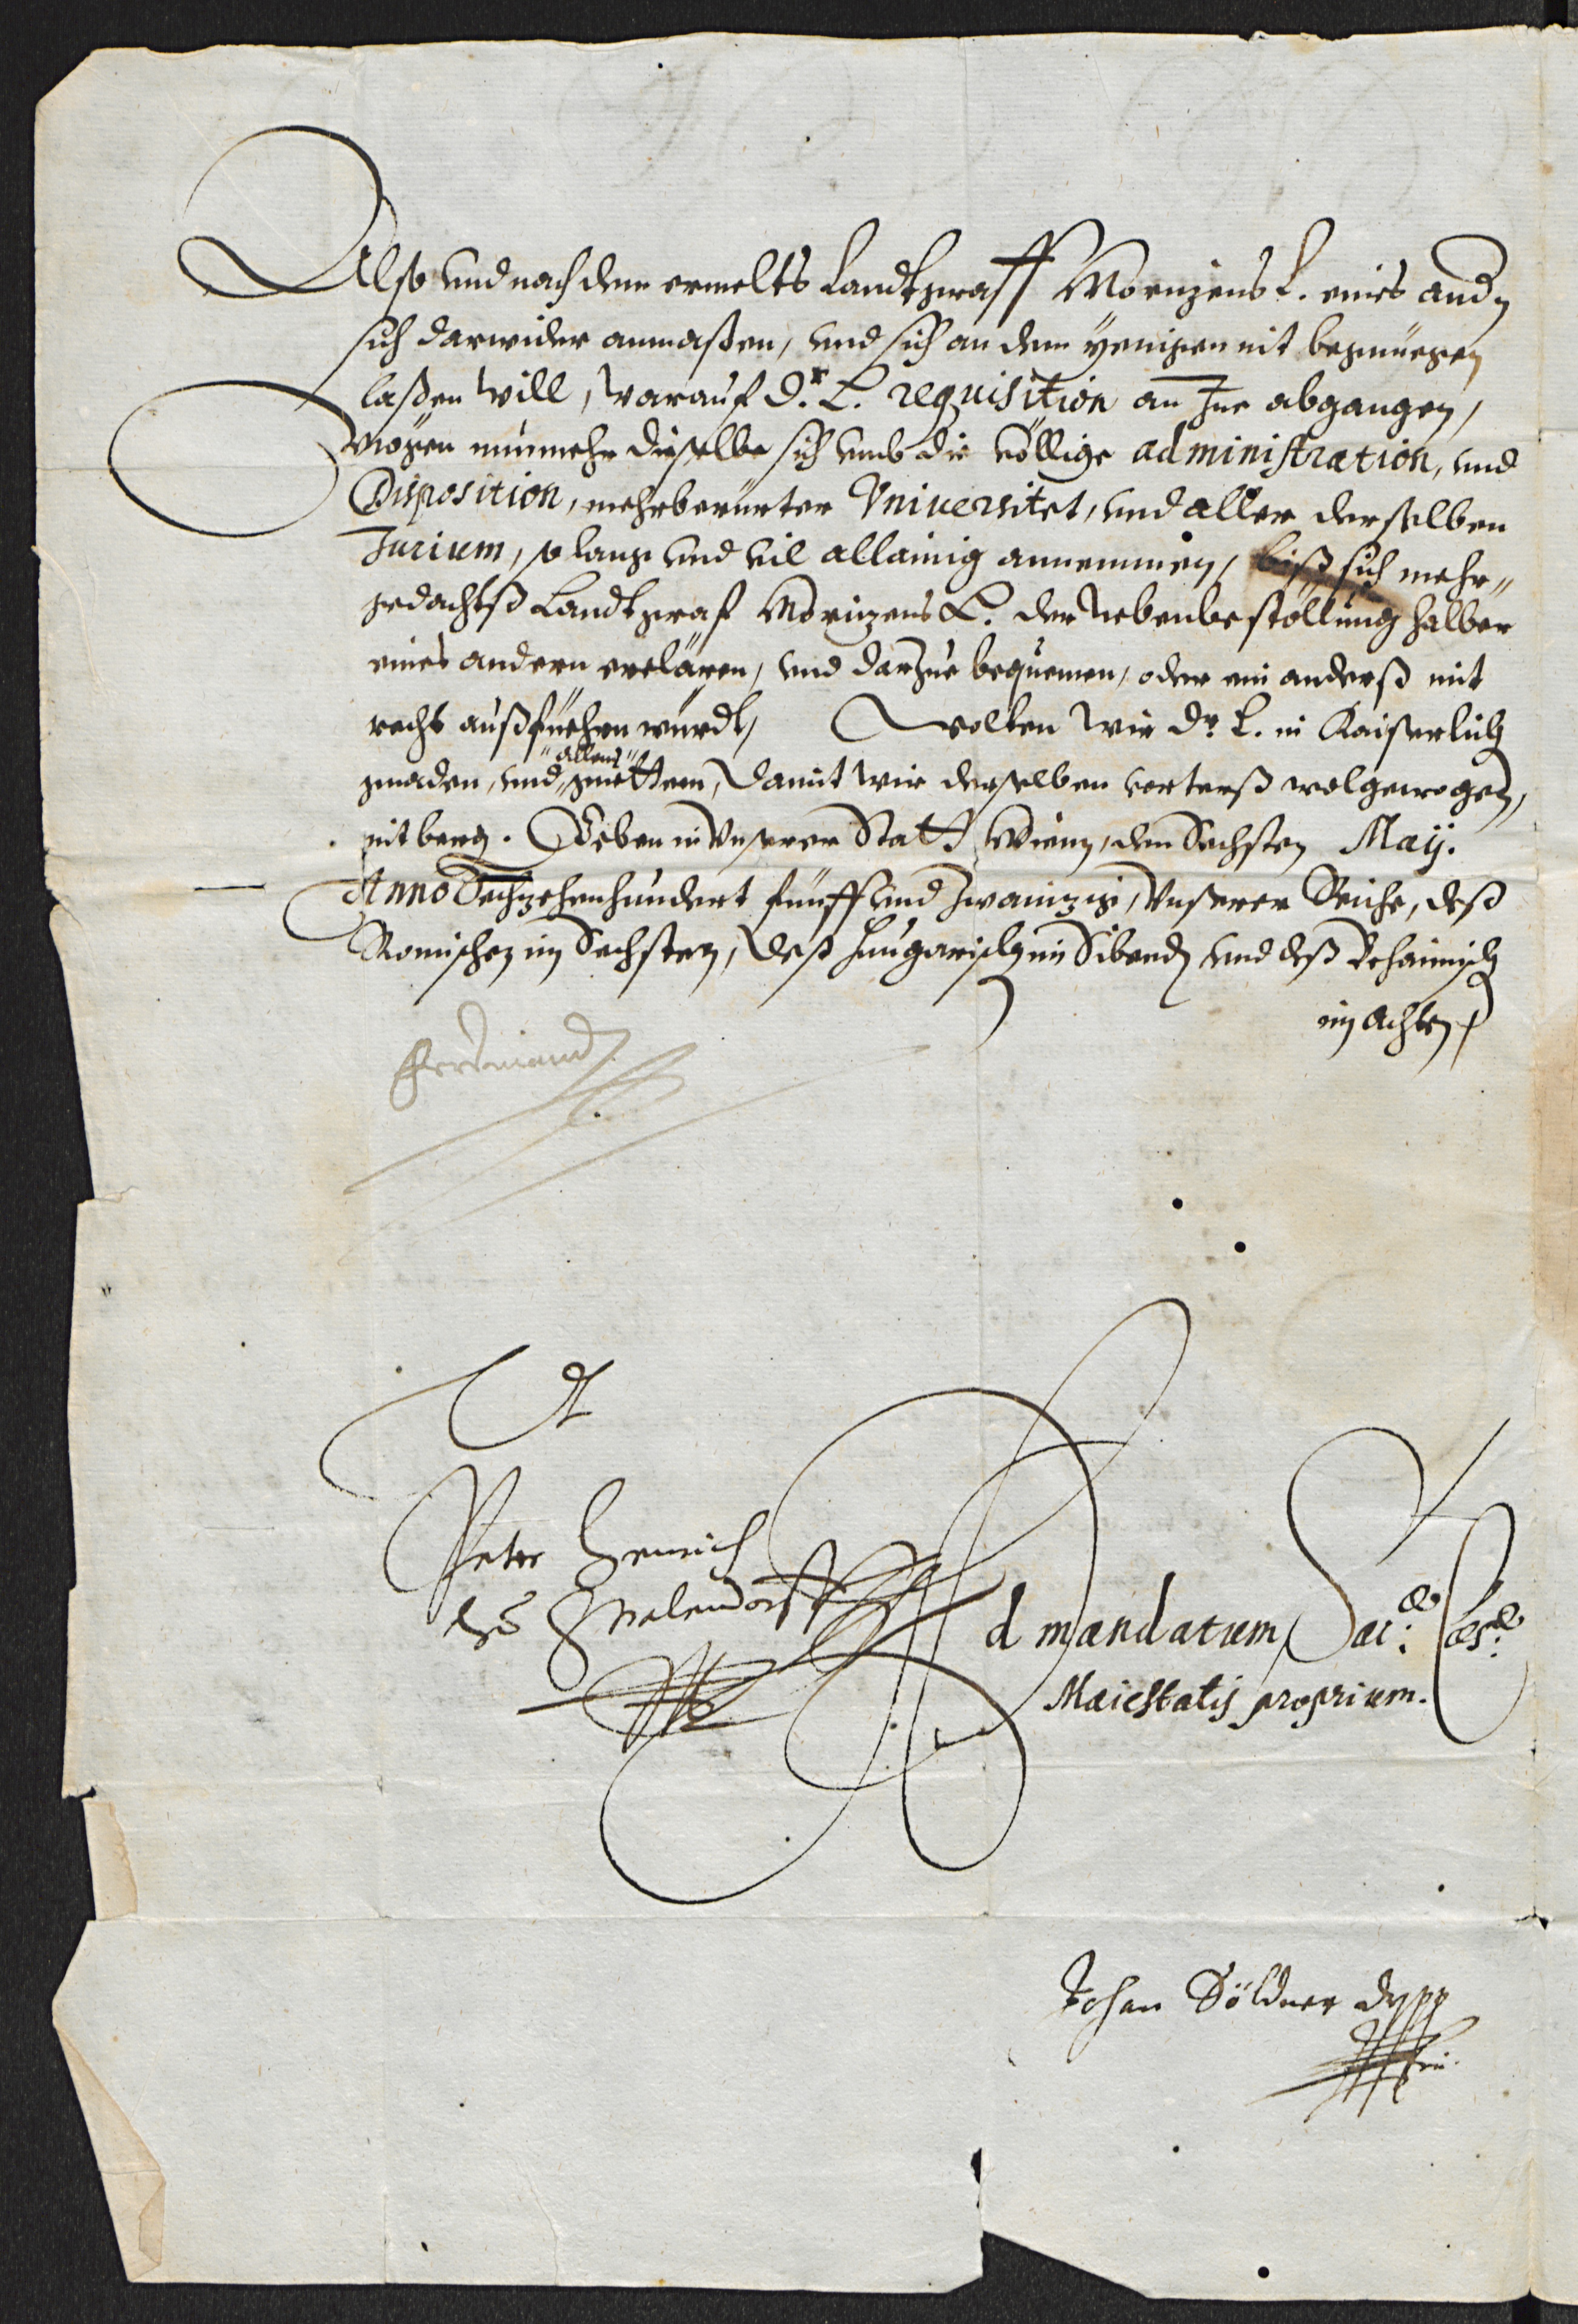 Also vnd nach dem ermelts Landtgraff Moritzens L. eines and[n]
sich darwider anmaßen, vnd sich an dem yenigen nit begnüegen
laßen will, warauf Dr. L. requisition an Jne abgangen,
mögen nunmehr dieselbe sich vmb die völlige administration, vnd
Disposition, mehrberürter Vniuersitet, vnd aller derselben
Jurium, so lang vnd vil allainig annemmen, biß sich mehr„
gedachtß Landtgraf Moritzens L. der Nebenbestöllung halber
eines andern erclären, vnd darzue bequemen, oder ein anderß mit
recht außfüehren würdt, Wolten wir Dr. L. in Kaiserlich
„allem„
gnaden, vnd guettem, damit wir derselben vorterß wolgewogen,
nit berg. Geben in Vnserer Statt Wienn, den Sechsten Maij.
Anno Sechzehenhundert fünff vnd zwainzig, Vnserer Reiche, deß
Römischen im Sechsten, deß Hungarisch im Sibend vnd deß Behaimisch
im Achten
Ferdinand
Vt
Peter Heinrich
von Stralendorff
Ad mandatum Sac: Cæs:
Maiestatis proprium.
Johan Söldner Dr